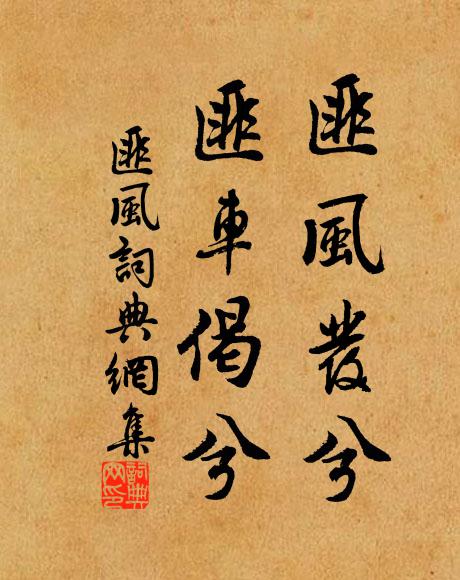 匪風發兮
匪車偈兮
匪風詞典網集
詞典網印